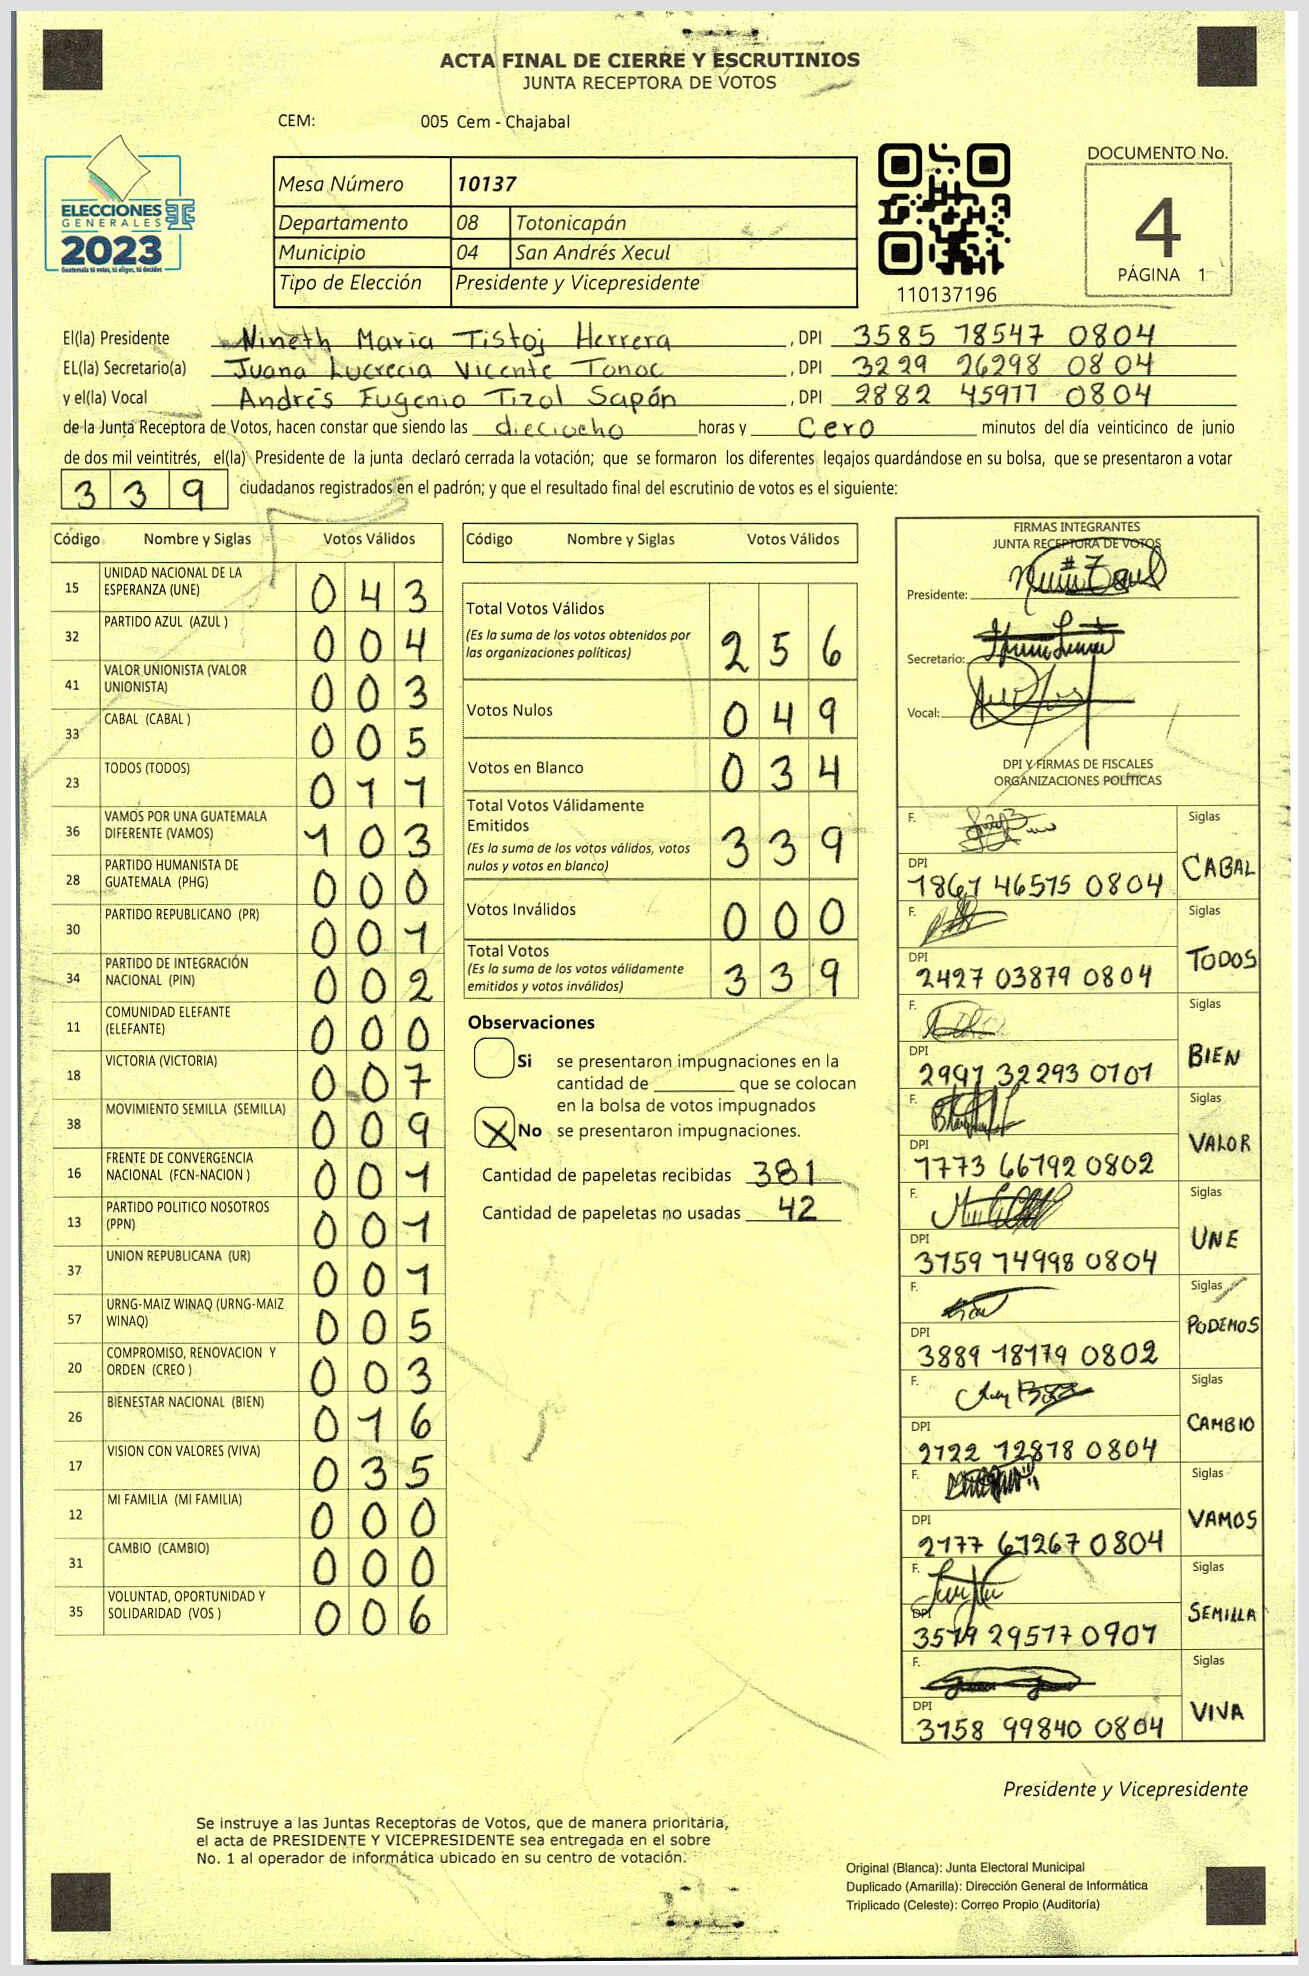 ACTA FINAL DE CIERRE Y ESCRUTINIOS
JUNTA RECEPTORA DE VOTOS
CEM: 005 Cem - Chajabal
ELECCIONES
GENERALES
2023
Guatemala tú votas, tú eliges, tú decides
Mesa Número 10137
Departamento 08 Totonicapán
Municipio 04 San Andrés Xecul
Tipo de Elección Presidente y Vicepresidente
110137196
DOCUMENTO No.
4
PÁGINA 1
El(la) Presidente Nineth Maria Tistoj Herrera, DPI 3585 78547 0804
EL(la) Secretario(a) Juana Lucrecia Vicente Tonoc, DPI 3229 26298 0804
y el(la) Vocal Andrés Eugenio Tizol Sapón, DPI 2882 45977 0804
de la Junta Receptora de Votos, hacen constar que siendo las dieciocho horas y Cero minutos del día veinticinco de junio
de dos mil veintitrés, el(la) Presidente de la junta declaró cerrada la votación; que se formaron los diferentes legajos guardándose en su bolsa, que se presentaron a votar
339 ciudadanos registrados en el padrón; y que el resultado final del escrutinio de votos es el siguiente:
Código Nombre y Siglas Votos Válidos
15 UNIDAD NACIONAL DE LA
ESPERANZA (UNE) 043
32 PARTIDO AZUL (AZUL ) 004
41 VALOR UNIONISTA (VALOR
UNIONISTA) 003
33 CABAL (CABAL ) 005
23 TODOS (TODOS) 011
36 VAMOS POR UNA GUATEMALA
DIFERENTE (VAMOS) 103
28 PARTIDO HUMANISTA DE
GUATEMALA (PHG) 000
30 PARTIDO REPUBLICANO (PR) 001
34 PARTIDO DE INTEGRACIÓN
NACIONAL (PIN) 002
11 COMUNIDAD ELEFANTE
(ELEFANTE) 000
18 VICTORIA (VICTORIA) 007
38 MOVIMIENTO SEMILLA (SEMILLA) 009
16 FRENTE DE CONVERGENCIA
NACIONAL (FCN-NACION ) 001
13 PARTIDO POLITICO NOSOTROS
(PPN) 001
37 UNION REPUBLICANA (UR) 001
57 URNG-MAIZ WINAQ (URNG-MAIZ
WINAQ) 005
20 COMPROMISO, RENOVACION Y
ORDEN (CREO ) 003
26 BIENESTAR NACIONAL (BIEN) 016
17 VISION CON VALORES (VIVA) 035
12 MI FAMILIA (MI FAMILIA) 000
31 CAMBIO (CAMBIO) 000
35 VOLUNTAD, OPORTUNIDAD Y
SOLIDARIDAD (VOS ) 006
Código Nombre y Siglas Votos Válidos
Total Votos Válidos
(Es la suma de los votos obtenidos por
las organizaciones políticas) 256
Votos Nulos 049
Votos en Blanco 034
Total Votos Válidamente
Emitidos
(Es la suma de los votos válidos, votos
nulos y votos en blanco) 339
Votos Inválidos 000
Total Votos
(Es la suma de los votos válidamente
emitidos y votos inválidos) 339
Observaciones
Si se presentaron impugnaciones en la
cantidad de ________ que se colocan
en la bolsa de votos impugnados
X No se presentaron impugnaciones.
Cantidad de papeletas recibidas 381
Cantidad de papeletas no usadas 42
FIRMAS INTEGRANTES
JUNTA RECEPTORA DE VOTOS
Presidente:
Secretario:
Vocal:
DPI Y FIRMAS DE FISCALES
ORGANIZACIONES POLÍTICAS
F. Siglas
DPI CABAL
1867 46575 0804
F. Siglas
DPI TODOS
2427 03879 0804
F. Siglas
DPI BIEN
2991 32293 0101
F. Siglas
DPI VALOR
1773 66792 0802
F. Siglas
DPI UNE
3159 74998 0804
F. Siglas
DPI PODEMOS
3889 18179 0802
F. Siglas
DPI CAMBIO
2722 72878 0804
F. Siglas
DPI VAMOS
2177 61267 0804
F. Siglas
DPI SEMILLA
3579 29577 0901
F. Siglas
DPI VIVA
3158 99840 0804
Presidente y Vicepresidente
Se instruye a las Juntas Receptoras de Votos, que de manera prioritaria,
el acta de PRESIDENTE Y VICEPRESIDENTE sea entregada en el sobre
No. 1 al operador de informática ubicado en su centro de votación.
Original (Blanca): Junta Electoral Municipal
Duplicado (Amarilla): Dirección General de Informática
Triplicado (Celeste): Correo Propio (Auditoría)